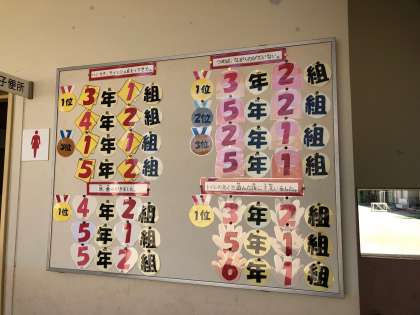 子便所
1位
3年1組
4年2組
3位
1年1組
5年2組
つめは、ながくのびていない。
1位
3年2組
2位
5年2組
3位
2年1組
5年1組
1位
4年2組
5年1組
5年2組
1位
3年2組
5年1組
6年1組